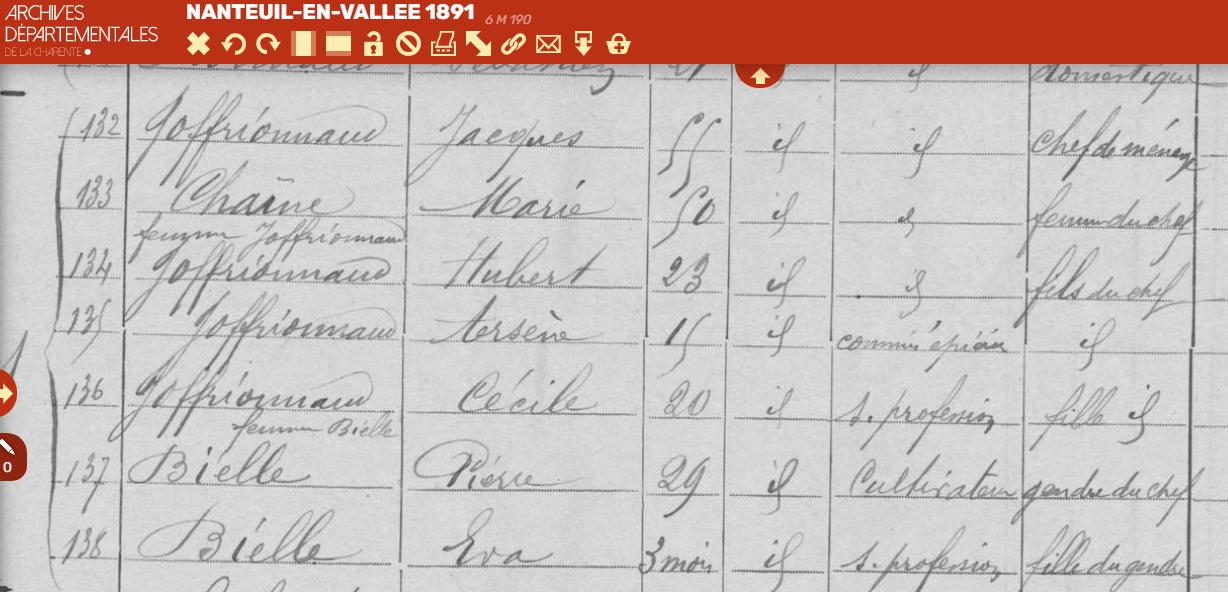 ARCHIVES
DÉPARTEMENTALES
DE LA CHARENTE
NANTEUIL-EN-VALLEE 1891 6 M 190
id domestique
132 Joffrionnaud Jacques 55 id id chef de ménage
133 Chaîne Marie 50 id id femme du chef
femme Joffrionnaud
134 Joffrionnaud Hubert 23 id id fils du chef
135 Joffrionnaud Arsène 15 id commis épicier id
136 Joffrionnaud Cécile 20 id s. profession fille id
femme Bielle
0
137 Bielle Pierre 29 id Cultivateur gendre du chef
138 Bielle Eva 3 mois id s. profession fille du gendre